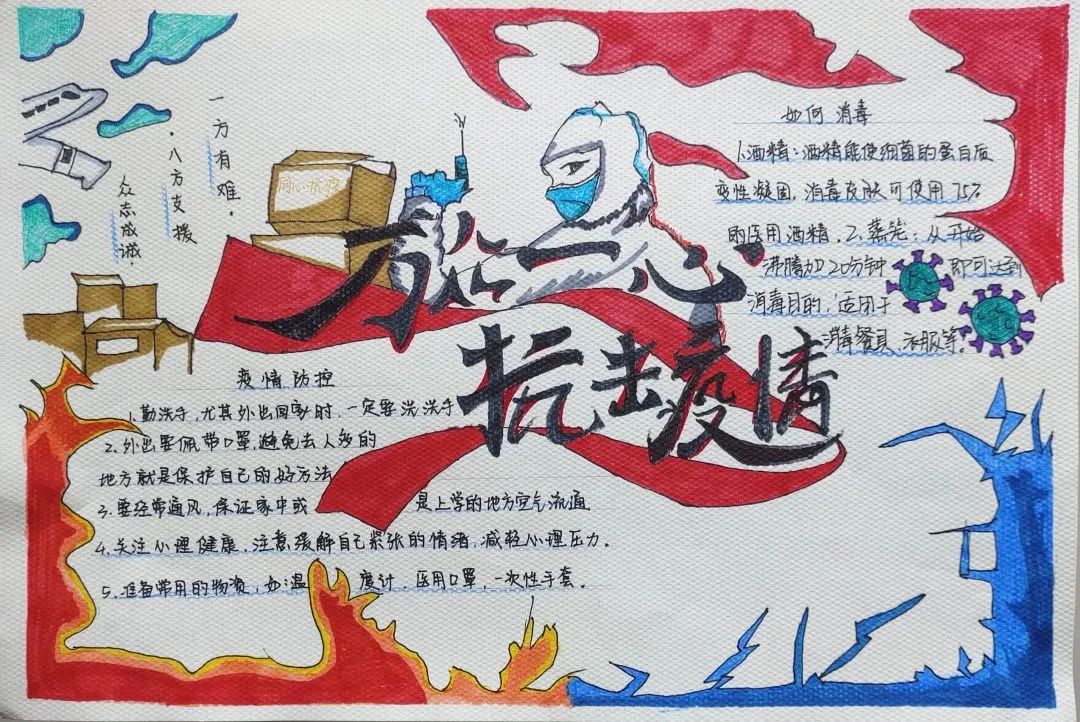 一方有难。
八方支援
众志成诚。
同心抗疫
万众一心
抗击疫情
如何消毒
1.酒精:酒精能使细菌的蛋白质
变性凝固,消毒皮肤可使用75%
的医用酒精.2.蒸笼:从开始
沸腾加20分钟 即可达到
消毒目的,适用于
消毒餐具、衣服等。
疫情防控
1.勤洗手,尤其外出回家时,一定要洗洗手
2.外出要佩带口罩,避免去人多的
地方就是保护自己的好方法
3.要经常通风,保证家中或 是上学的地方空气流通
4.关注心理健康,注意缓解自己紧张的情绪,减轻心理压力。
5.准备常用的物资,如:温 度计,医用口罩,一次性手套。